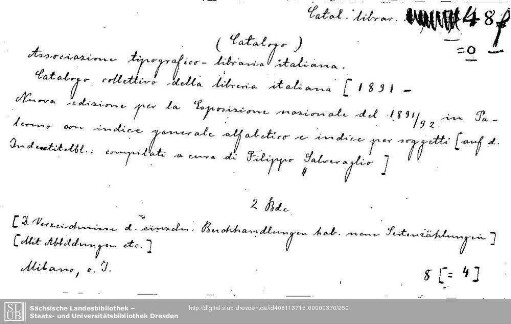 Catal. librar. 48f
=0
(Catalogo)
Associazione tipografico-libraria italiana.
Catalogo collettivo della libreria italiana [1891 –
Nuova edizione per la Esposizione nazionale del 1891/92 in Pa-
lermo con indice generale alfabetico e indice per soggetti [auf d.
Indextitelbl.: compilati a cura di Filippo Salveraglio]
2 Bde
[D. Verzeichnisse d. einzeln. Buchhandlungen hab. neue Seitenzählungen]
[Mit Abbildungen etc.]
Milano, o. J.
8 [= 4]
SLUB
Sächsische Landesbibliothek –
Staats- und Universitätsbibliothek Dresden